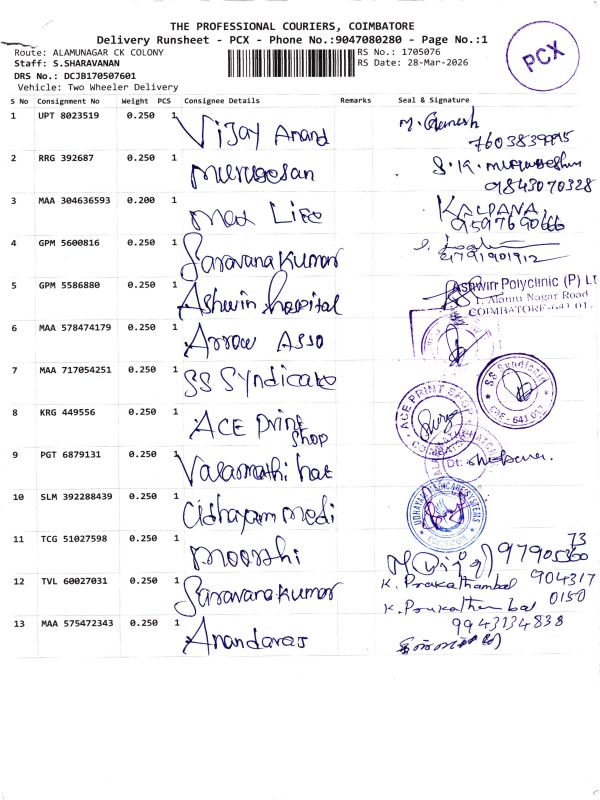 THE PROFESSIONAL COURIERS, COIMBATORE
Delivery Runsheet - PCX - Phone No.:9047080280 - Page No.:1
Route: ALAMUNAGAR CK COLONY
RS No.: 1705076
Staff: S.SHARAVANAN
RS Date: 28-Mar-2026
DRS No.: DCJB170507601
Vehicle: Two Wheeler Delivery
PCX
S No Consignment No Weight PCS Consignee Details Remarks Seal & Signature
1 UPT 8023519 0.250 1 Vijay Anand
7603839995
2 RRG 392687 0.250 1 Murugesan
9843070328
3 MAA 304636593 0.200 1 Max Life KALPANA
9597690666
4 GPM 5600816 0.250 1 Saravanakumar
9791901912
5 GPM 5586880 0.250 1 Ashwin hospital
Ashwin Polyclinic (P) Lt
1, Alamu Nagar Road
COIMBATORE-641 01
6 MAA 578474179 0.250 1 Arrow Asso
7 MAA 717054251 0.250 1 SS Syndicate
SS Syndicate
CBE - 641 0
8 KRG 449556 0.250 1 ACE Print Shop
ACE PRINT SHOP
9 PGT 6879131 0.250 1
Dt:
10 SLM 392288439 0.250 1 Udhayam medi
11 TCG 51027598 0.250 1 Moorthi
12 TVL 60027031 0.250 1 Saravanakumar
K. Prakathambal 904317
0150
13 MAA 575472343 0.250 1 Anandaraj
9943134838